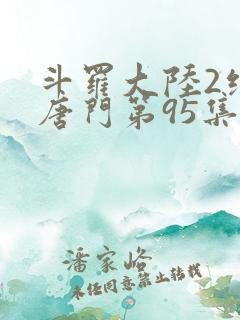 斗羅大陸2絕
唐門第95集
潘家峪
未任同意禁止转载